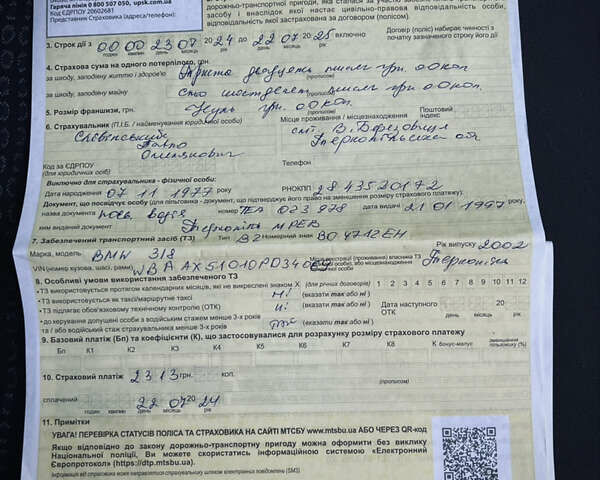 Гаряча лінія 0 800 507 050, upsk.com.ua
КОД ЄДРПОУ 20602681
Представник Страховика (адреса/телефон):
дорожньо-транспортної пригоди, яка сталася за участю забезпеченого
засобу і внаслідок якої настає цивільно-правова відповідальність особи,
відповідальність якої застрахована за договором (полісом).
3. Строк дії з 00 00 23 07 20 24 до 22 07 20 25 включно
годин хвилин день місяць рік день місяць рік
Договір (поліс) набирає чинності з
початку зазначеного строку його дії
4. Страхова сума на одного потерпілого, грн.
за шкоду, заподіяну життю і здоров'ю Триста двадцять тисяч грн. 00 коп.
(прописом)
за шкоду, заподіяну майну сто шістдесят тисяч грн. 00 коп.
(прописом)
5. Розмір франшизи, грн. Нуль грн. 00 коп.
(прописом)
6. Страхувальник (П.І.Б. / найменування юридичної особи) Місце проживання / місцезнаходження Поштовий індекс
смт В. Березовиця
Павло Тернопільська обл
Код за ЄДРПОУ Телефон
(для юридичних осіб)
Виключно для страхувальника - фізичної особи:
Дата народження 07 11 1977 року РНОКПП 2843520172
день місяць рік
Документ, що посвідчує особу (для пільговика - документ, що підтверджує його право на зменшення розміру страхового платежу).
назва документа посв. водія номер ТЕА 023978 дата видачі 21 01 1997 року,
день місяць рік
ким виданий документ Тернопіль МРЕВ
7. Забезпечений транспортний засіб (ТЗ) Тип B2 Номерний знак ВО4712ЕН
Марка, модель BMW 318 Рік випуску 2002
VIN (номер кузова, шасі, рами) Місце реєстрації (проживання) власника ТЗ Тернопіль
8. Особливі умови використання забезпеченого ТЗ
• ТЗ використовується протягом календарних місяців, які не викреслені знаком X (для річного договору) 1 2 3 4 5 6 7 8 9 10 11 12
• ТЗ використовується як таксі/маршрутне таксі Ні (вказати так або ні)
• ТЗ підлягає обов'язковому технічному контролю (ОТК) Ні (вказати так або ні) Дата наступного ОТК
день місяць рік
• до керування допущені особи з водійським стажем менше 3-х років
та / або водійський стаж страхувальника менше 3-х років так (вказати так або ні)
9. Базовий платіж (Бп) та коефіцієнти (К), що застосовувалися для розрахунку розміру страхового платежу
Бп К1 К2 К3 К4 К5 К6 К7 К8 К бонус-малус зменшення платежу (%)
10. Страховий платіж 2313 грн. коп.
(прописом)
сплачений 22 07 20 24
годин хвилин день місяць рік
11. Примітки
УВАГА! ПЕРЕВІРКА СТАТУСІВ ПОЛІСА ТА СТРАХОВИКА НА САЙТІ МТСБУ www.mtsbu.ua АБО ЧЕРЕЗ QR-код
Якщо відповідно до закону дорожньо-транспортну пригоду можна оформити без виклику
Національної поліції, Ви можете скористатись інформаційною системою «Електронний
Європротокол» (https://dtp.mtsbu.ua)